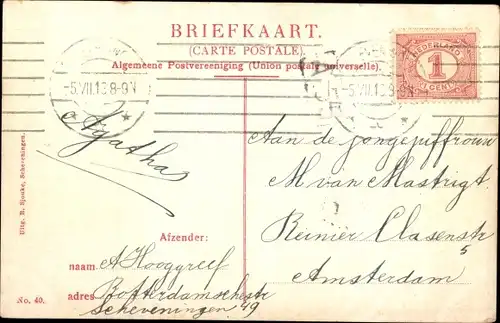 BRIEFKAART.
(CARTE POSTALE).
Algemeene Postvereeniging (Union postale universelle).
NEDERLAND
1
CENT
-5.VII.13 8-9N
-5.VII.13 8-9N
Agatha
Aan de jongejuffrouw
M van Mastrigt.
Reinier Claesenstr
5
Amsterdam
Afzender:
naam A Hooggreef
adres Rotterdamschestr
49
Scheveningen
No. 40.
Uitg. R. Sjouke, Scheveningen.